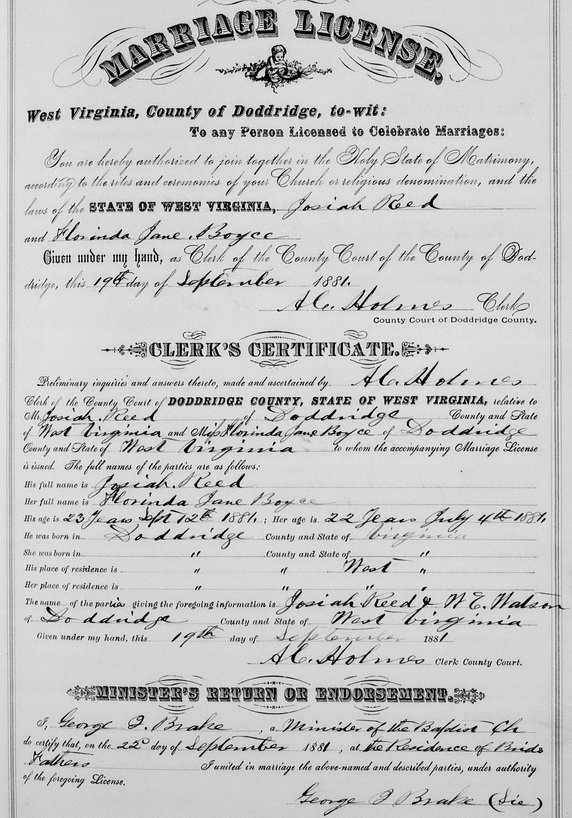 MARRIAGE LICENSE.
West Virginia, County of Doddridge, to-wit:
To any Person Licensed to Celebrate Marriages:
You are hereby authorized to join together in the Holy State of Matrimony,
according to the rites and ceremonies of your Church or religious denomination, and the
laws of the STATE OF WEST VIRGINIA, Josiah Reed
and Florinda Jane Boyce
Given under my hand, as Clerk of the County Court of the County of Dod-
dridge, this 19th day of September 1881.
A.C. Holmes Clerk
County Court of Doddridge County.
CLERK'S CERTIFICATE.
Preliminary inquiries and answers thereto, made and ascertained by A.C. Holmes
Clerk of the County Court of DODDRIDGE COUNTY, STATE OF WEST VIRGINIA, relative to
Mr. Josiah Reed of Doddridge County and State
of West Virginia and Miss Florinda Jane Boyce of Doddridge
County and State of West Virginia to whom the accompanying Marriage License
is issued. The full names of the parties are as follows:
His full name is Josiah Reed
Her full name is Florinda Jane Boyce
His age is 23 Years Sept 12th 1881.; Her age is 22 Years July 4th 1881.
He was born in Doddridge County and State of Virginia
She was born in " County and State of "
His place of residence is " " West "
Her place of residence is " " " "
The name of the parties giving the foregoing information is Josiah Reed & W.E. Watson
of Doddridge County and State of West Virginia
Given under my hand, this 19th day of September 1881
A.C. Holmes Clerk County Court.
MINISTER'S RETURN OR ENDORSEMENT.
I, George J. Brake, a Minister of the Baptist Ch
do certify that, on the 22d day of September 1881, at the Residence of Brides
Fathers I united in marriage the above-named and described parties, under authority
of the foregoing License.
George J Brake (Lie)